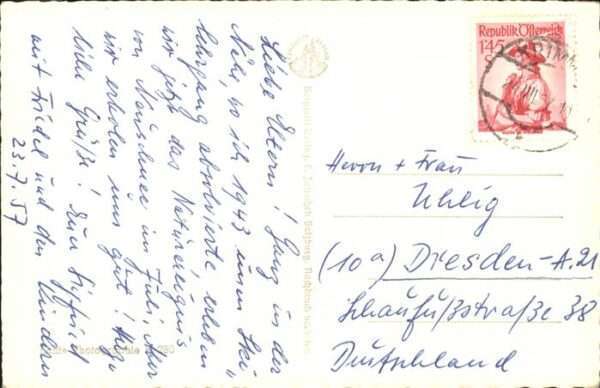 Liebe Eltern! Ganz in der
Nähe, wo ich 1943 unsern Ski-
lehrgang absolvierte erleben
wir jetzt das Naturereignis
von Neuschnee im Juli. Aber
wir erholen uns gut! Herzl
liche Grüße! Euer Siegfried
mit Friedel und den Kindern
23.7.57
Republik Österreich
1.45
S
Herrn + Frau
Uhlig
(10a) Dresden-A.21
Schaufußstraße 38
Deutschland